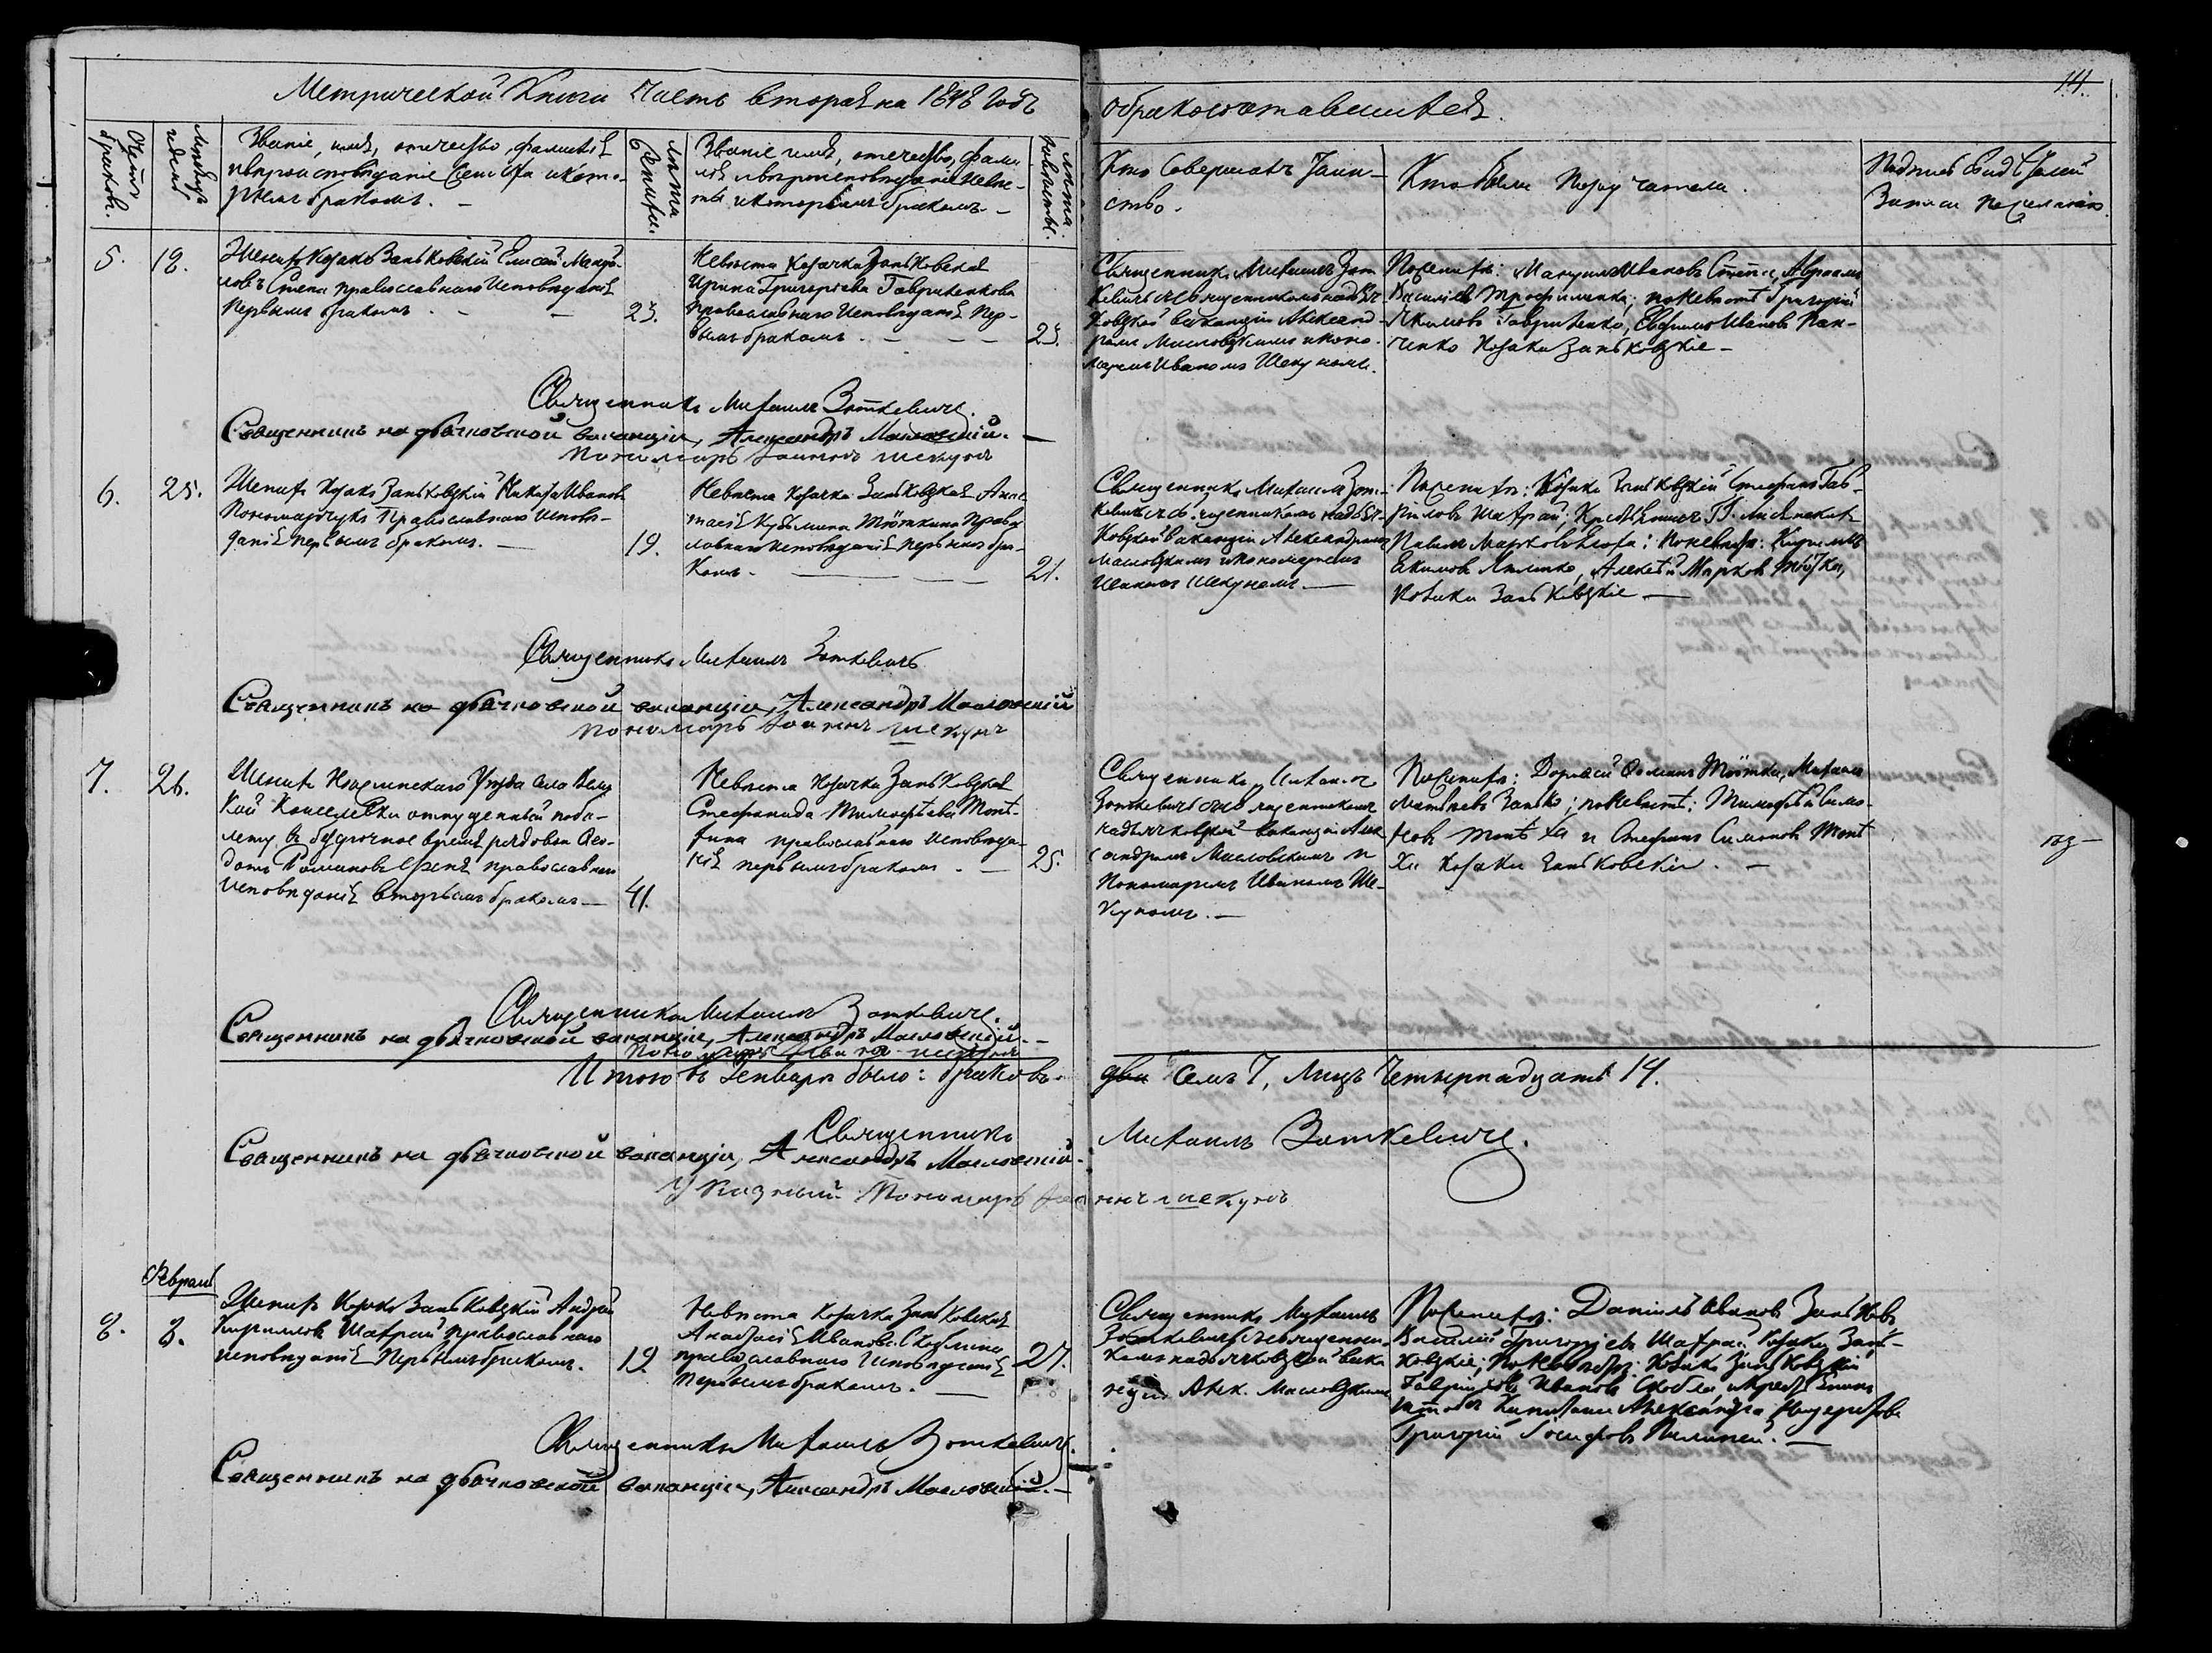 Метрической Книги Часть вторая на 1848 годъ
о бракосочтавшихся.
Счетъ браковъ.
Мѣсяцъ и день
Званіе, имя, отечество, фамилія
и вѣроисповѣданіе Жениха и кото-
рымъ бракомъ. —
Лѣта Жениха.
Званіе имя, отечество, фами-
лія и вѣроисповѣданіе Невѣс-
ты и которымъ бракомъ. —
Лѣта невѣсты.
Кто Совершалъ Таин-
ство.
Кто были Поручатели.
Подпись Свидѣтелей
Записи по желанію.
5.
18.
Женихъ Козакъ Заньковскій Елисей
Степа православнаго Исповѣданія
Первымъ бракомъ. — —
23.
Невѣста Козачка Заньковская
Ирина Григоріева Гавриленкова
Православнаго Исповѣданія Пер-
вымъ бракомъ. — — —
23.
Священникъ Михаилъ Зат-
кевичъ съ священникомъ на дьяч-
ковской ваканціи Александ-
ромъ Масловскимъ и поно-
маремъ Иваномъ Шекуномъ.
По женихѣ: Иванъ Степа, Авраамъ
Василіевъ Трофименко; по невѣстѣ Григорій
Якимовъ Гавриленко, Евфимъ Ивановъ Пан-
ченко Козаки Заньковскіе —
Священникъ Михаилъ Заткевичъ.
Священникъ на дьячковской ваканціи, Александръ Масловскій. —
Пономарь Іоаннъ Шекунъ
6.
25.
Женихъ Козакъ Заньковскій Никита Ивановъ
Пономарчукъ Православнаго Исповѣ-
данія первымъ бракомъ. —
19.
Невѣста Козачка Заньковская Анас-
тасія Кузьмина Тюткина Правос
лавнаго Исповѣданія первымъ бра-
комъ. — — —
21.
Священникъ Михаилъ Зат-
кевичъ съ священникомъ на дьяч-
ковской ваканціи Александромъ
Масловскимъ и пономаремъ
Иваномъ Шекуномъ. —
По женихѣ: Козаки Заньковскій Стефанъ Гав-
риловъ Шафрай; Крестьянинъ
Павелъ Марковъ; по невѣстѣ: Кириллъ
Екимовъ, Алексѣй Марковъ Тютка,
Козаки Заньковскіе —
Священникъ Михаилъ Заткевичъ
Священникъ на дьячковской ваканціи, Александръ Масловскій
пономарь Іоаннъ Шекунъ
7.
26.
Женихъ Уѣзда Села Вели
кой Кошелевки отпущенный по би-
лету въ безсрочное время рядовой Ѳео-
дотъ Романовъ православнаго
Исповѣданія вторымъ бракомъ —
41.
Невѣста Козачка Заньковская
Стефанида Тимофѣева
православнаго Исповѣда-
нія первымъ бракомъ. —
25.
Священникъ Михаилъ
Заткевичъ съ священникомъ
на дьячковской ваканціи Алек
сандромъ Масловскимъ и
Пономаремъ Иваномъ Ше-
куномъ. —
По женихѣ: Дорофей Тютка, Михаилъ
Матвѣевъ Занько; по невѣстѣ: Тимофѣй Симо-
новъ и Стефанъ Симоновъ
Козаки Заньковскіе. —
Священникъ Михаилъ Заткевичъ.
Священникъ на дьячковской ваканціи, Александръ Масловскій. —
Пономарь Іоаннъ Шекунъ
Итого въ Генварѣ было: браковъ. два Семь 7, Лицъ Четырнадцать 14.
Священникъ Михаилъ Заткевичъ.
Священникъ на дьячковской ваканціи, Александръ Масловскій.
Указный Пономарь Іоаннъ Шекунъ
Февраль
8.
8.
Женихъ Козакъ Заньковскій Андрей
Кирилловъ Шафрай православнаго
исповѣданія Первымъ бракомъ.
19.
Невѣста Козачка Заньковская
Анастасія Иванова Скоблина
православнаго Исповѣданія
Первымъ бракомъ. —
27.
Священникъ Михаилъ
Заткевичъ съ священни-
комъ на дьячковской вака
нціи Алек. Масловскимъ
По женихѣ: Даніилъ Ивановъ
Василій Григорьевъ Шафрай Козаки Зань-
ковскіе; по невѣстѣ: Козакъ Заньковскій
Гавріилъ Ивановъ Скобла, и Крестьянинъ
Штабсъ Капитана Александра
Григорій Іосифовъ. —
Священникъ Михаилъ Заткевичъ.
Священникъ на дьячковской ваканціи, Александръ Масловскій. —